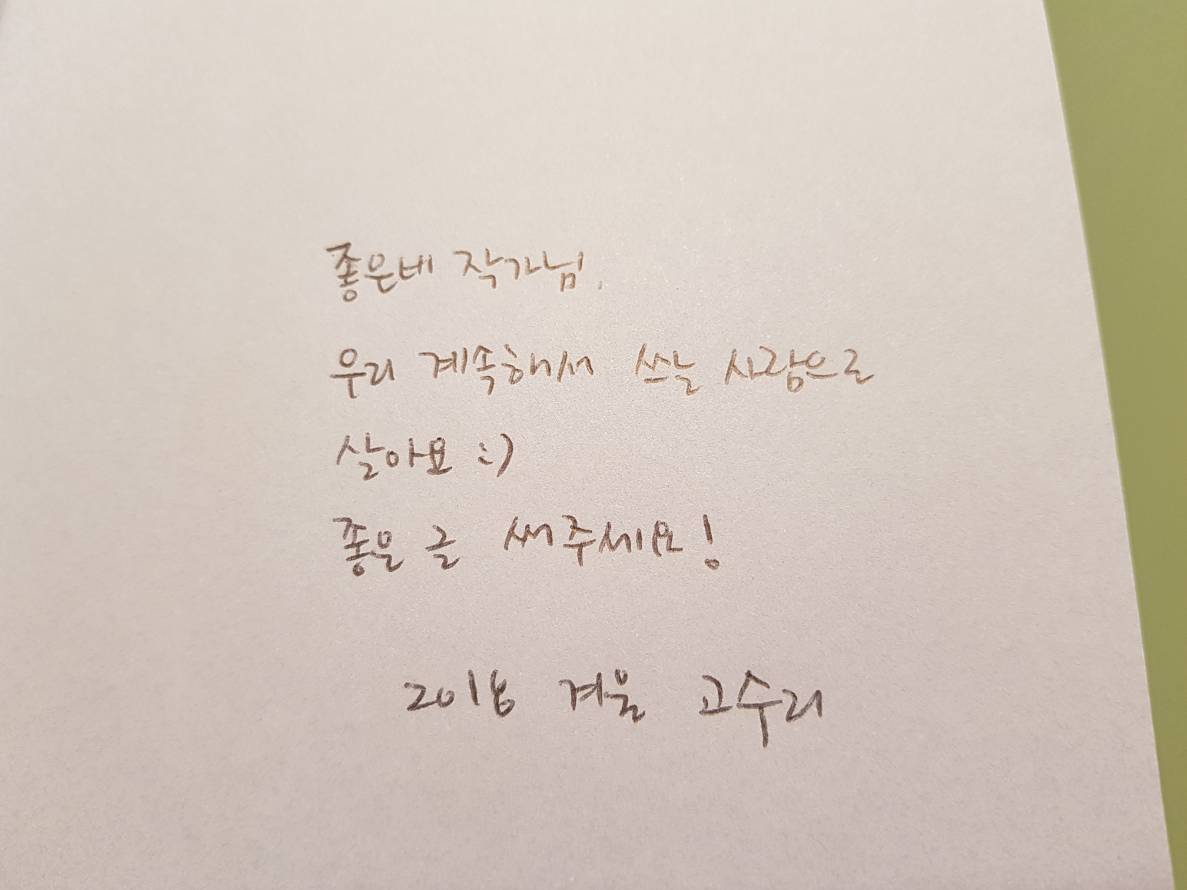 좋은비 작가님,
우리 계속해서 쓰는 사람으로
살아요 :)
좋은 글 써주세요!
2018 겨울 고수리